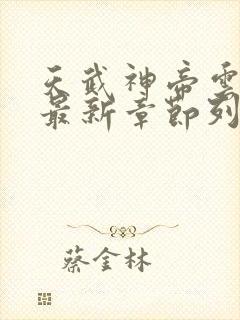 天武神帝雲
最新章節列
蔡金林